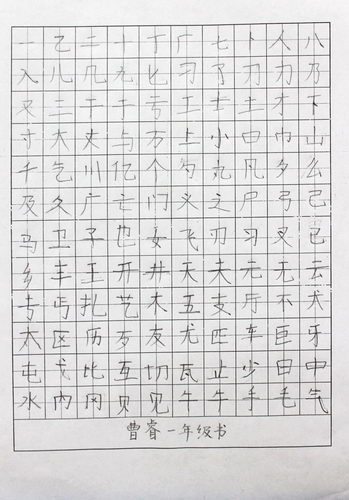 一乙二十丁厂七卜人八
入儿几九匕刁了刀力乃
又三干于亏工土士才下
寸大丈与万上小口巾山
千乞川亿个勺丸凡夕么
及久广亡门义之尸弓己
马卫子也女飞刃习叉已
乡丰王开井天夫元无云
专丐扎艺木五支厅不犬
太区历歹友尤匹车巨牙
屯戈比互切瓦止少日中
水内冈贝见牛手毛气
曹睿一年级书